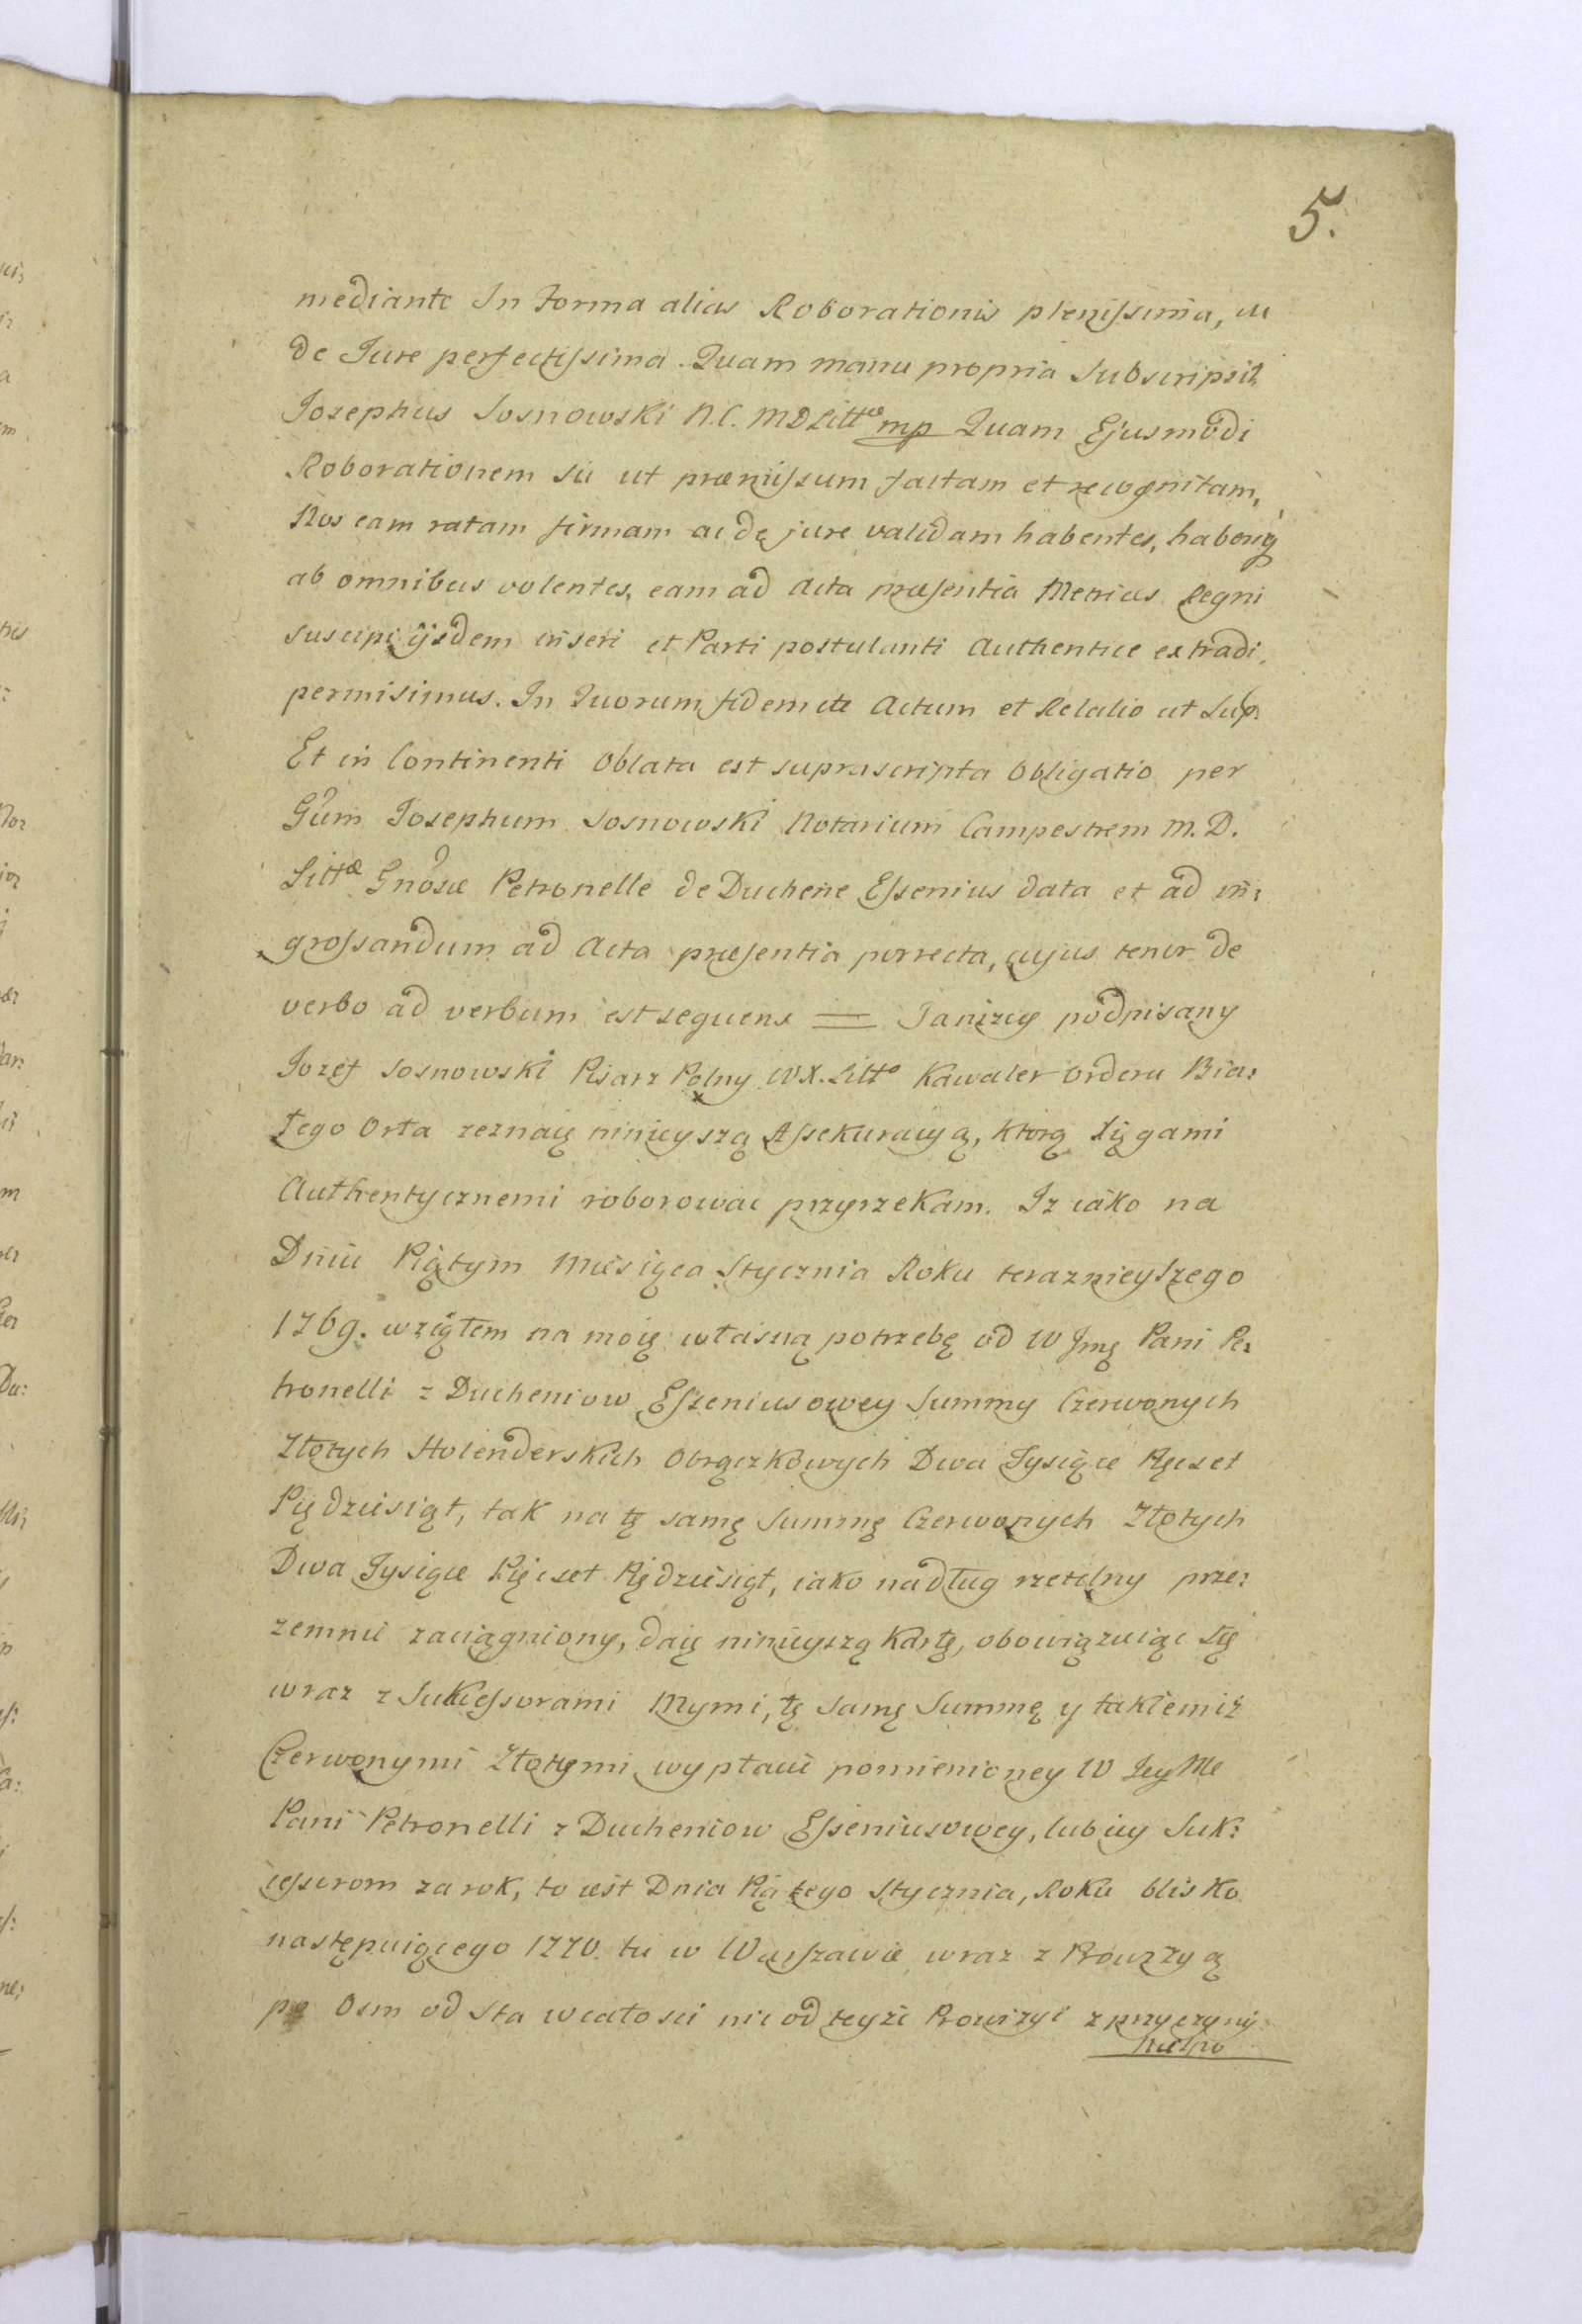 5.
mediante In Forma alias Roborationis plenissima, ac
de Jure perfectissima. Quam manu propria Subscripsit
Josephus Sosnowski N.C. MDLittæ mp Quam Ejusmodi
Roborationem sic ut præmissum factam et recognitam,
Nos eam ratam firmam ac de jure validam habentes, haberiq
ab omnibus volentes, eam ad Acta præsentia Metrices Regni
suscipi ijsdem inseri et Parti postulanti Authentice extradi
permisimus. In Quorum fidem etc Actum et Relatio ut Sup:
Et in Continenti Oblata est suprascripta Obligatio per
Gům Josephum Sosnowski Notarium Campestrem M.D.
Littæ Gnosæ Petronelle de Duchene Essenius data et ad in:
grossandum ad Acta præsentia porrecta, cujus tenor de
verbo ad verbum est sequens = Ja niżey podpisany
Jozef Sosnowski Pisarz Polny WX. Litto Kawaler Orderu Bia:
łego Orła zeznaię ninieyszą Assekuracyą, ktorą Xięgami
Authentycznemi roborować przyrzekam. Iz iako na
Dniu Piątym Miesiąca Stycznia Roku teraznieyszego
1769. wziąłem na moię własną potrzebę od W Jmę Pani Pe:
tronelli z Ducheniow Esseniusowey Summy Czerwonych
Złotych Holenderskich Obrączkowych Dwa Tysiące Pięcset
Piędziesiąt, tak na tę samę Summę Czerwonych Złotych
Dwa Tysiące Pięcset Piędziesiąt, iako na dług rzetelny prze:
zemnie zaciągniony, daię ninieyszą Kartę, obowiązuiąc się
wraz z Sukcessorami Mymi, tę samę Summę y takiemiż
Czerwonymi Złotymi wypłacić pomienioney W JeyMc
Pani Petronelli z Ducheniow Esseniusowey, lub iey Suk:
cessorom za rok, to iest Dnia Piątego Stycznia, Roku blisko
następuiącego 1770. tu w Warszawie wraz z Prowizyą
po Osm od Sta w całosci nic od teyże Prowizyi z przyczyny